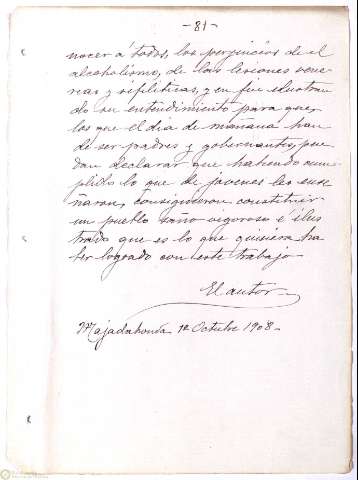 -81-
nocer a todos, los perjuicios de el
alcoholismo, de las lesiones vene
reas y sifiliticas, y en fin ilustran
do su entendimiento para que,
los que el dia de mañana han
de ser padres y gobernantes, pue
dan declarar que habiendo cum
plido lo que de jovenes les ense
ñaron, consiguieron constituir
un pueblo sano vigoroso e ilus
trado que es lo que quisiera ha
ber logrado con este trabajo
El autor
Majadahonda 12 Octubre 1908-